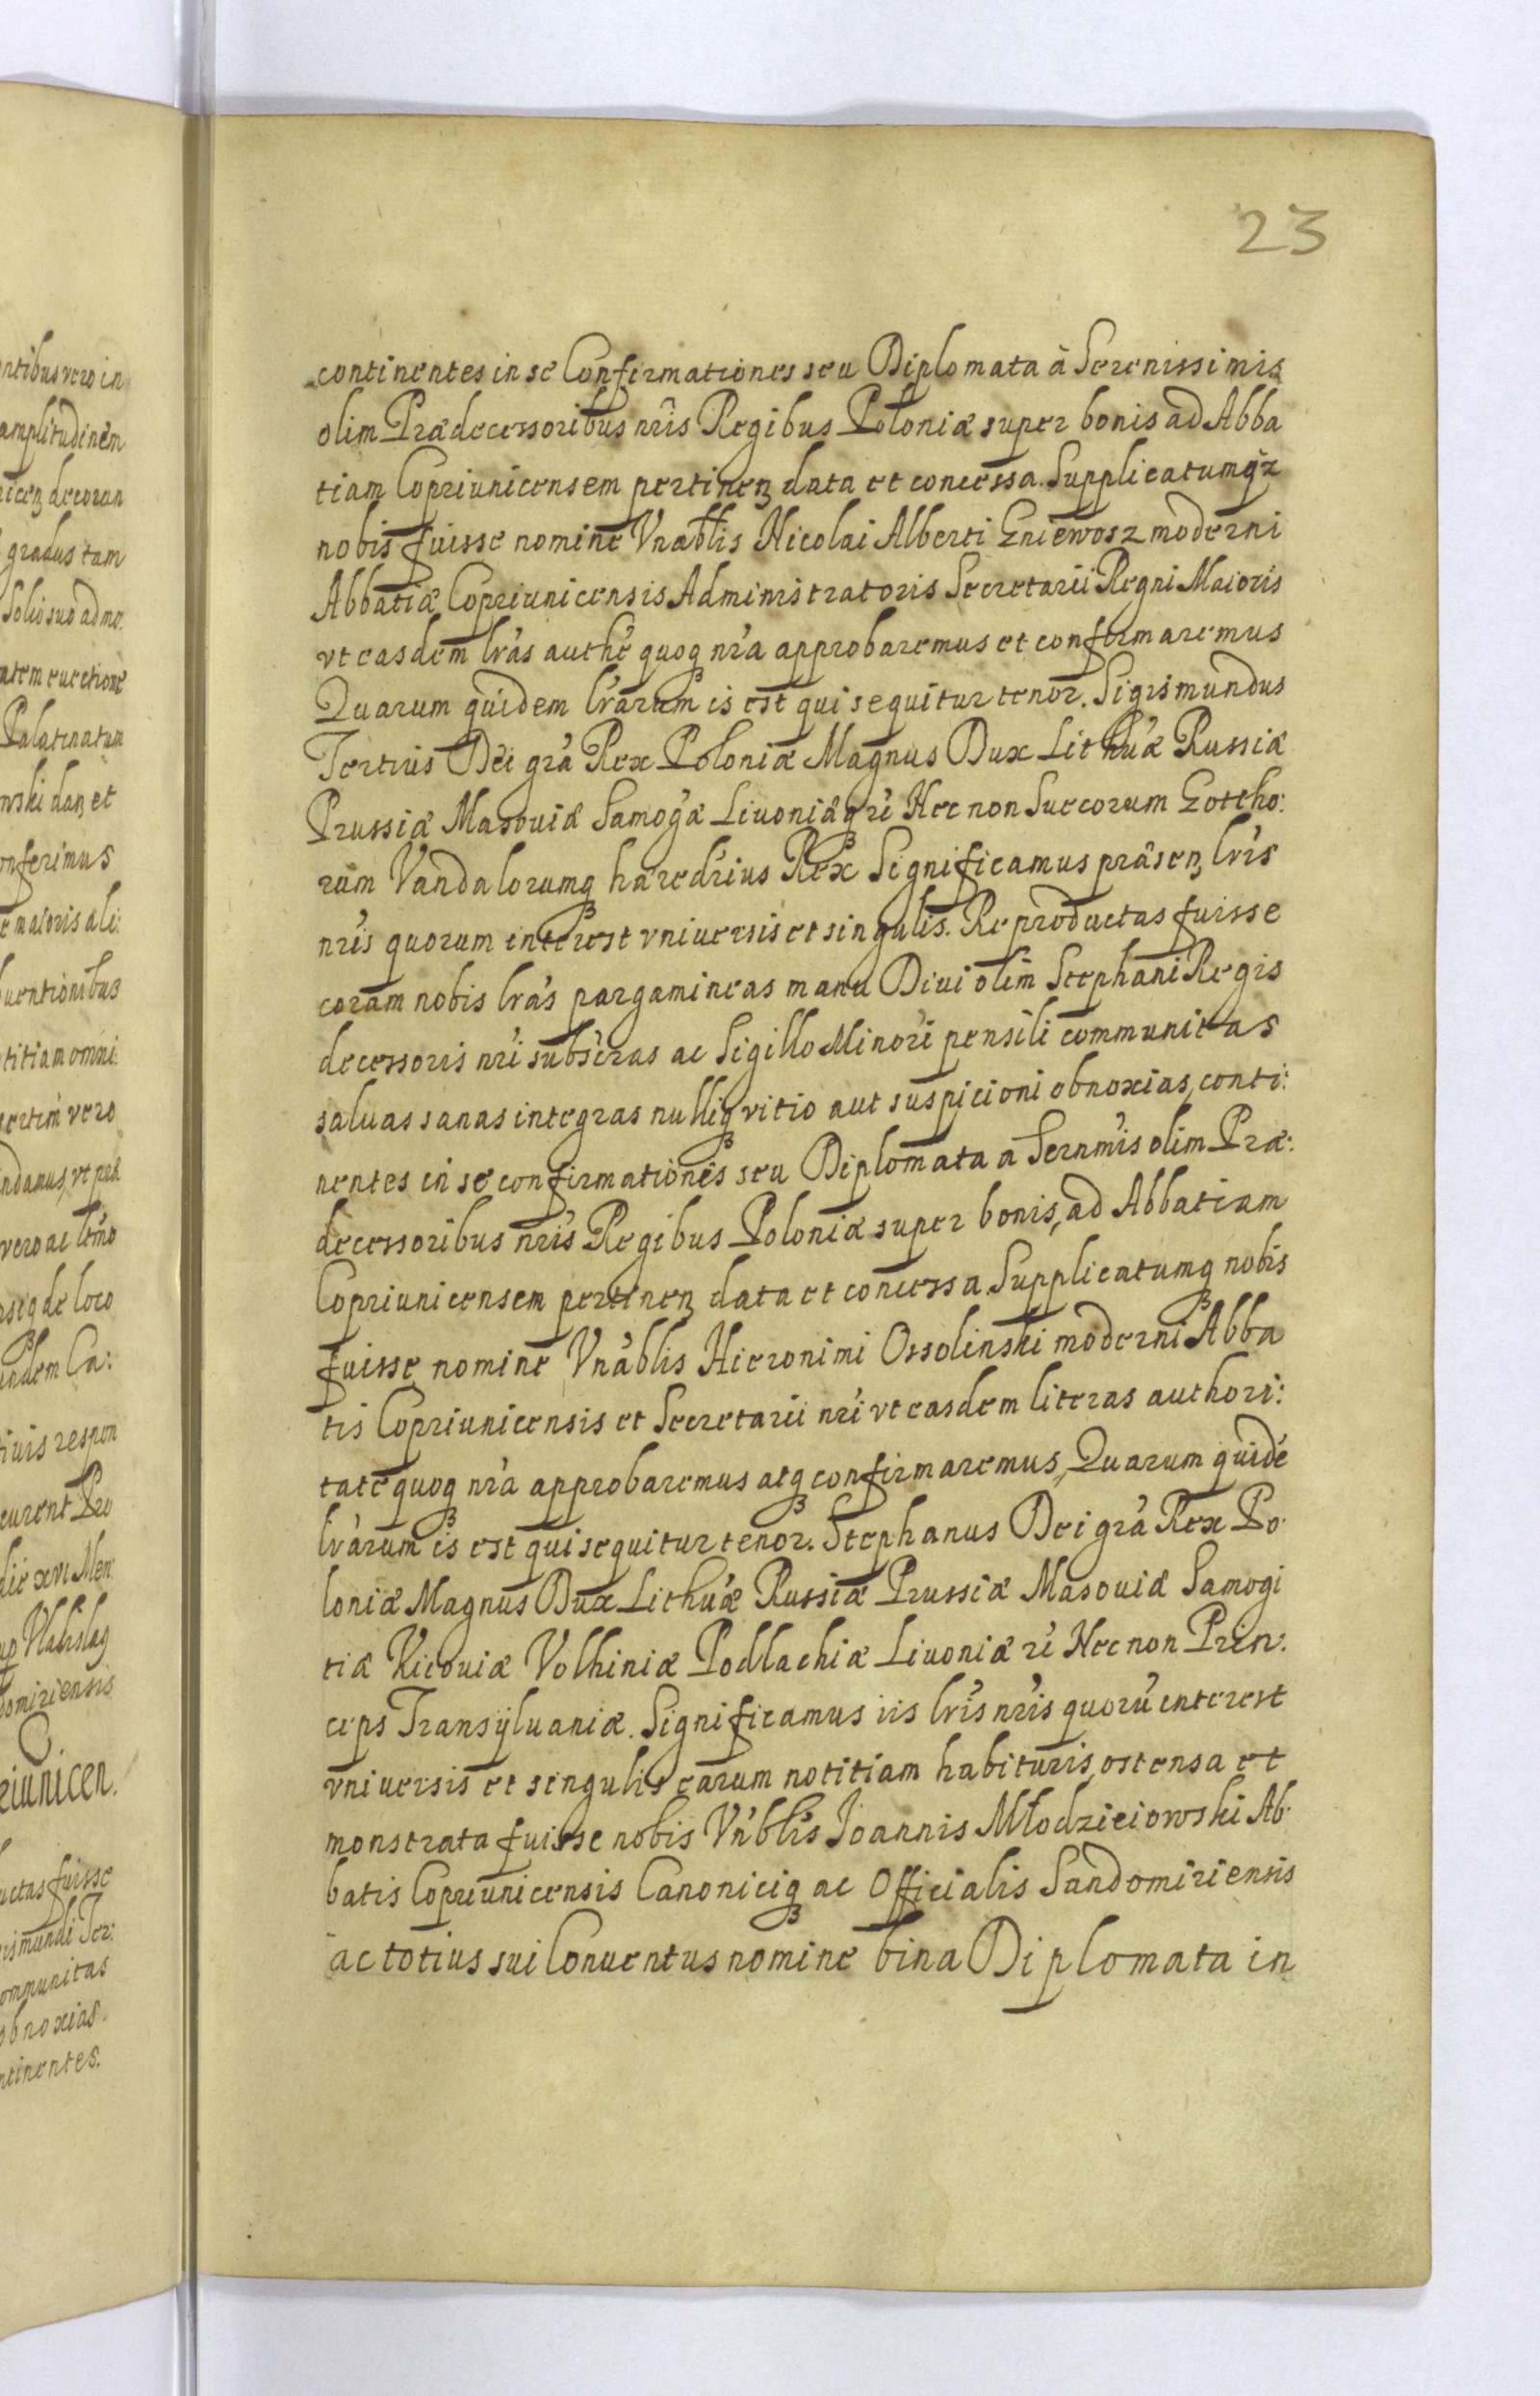 23
continentes in se Confirmationes seu Diplomata à Serenissimis
olim Prædecessoribus nr̃is Regibus Poloniæ super bonis ad Abba
tiam Copriunicensem pertinen data et concessa. Supplicatumq̃z
nobis fuisse nomine Vnablis Nicolai Alberti Gniewosz moderni
Abbatiæ Copriunicensis Administratoris Secretarii Regni Maioris
vt easdem lr̃as authẽ quoq nr̃a approbaremus et confirmaremus
Quarum quidem lr̃arum is est qui sequitur tenor. Sigismundus
Tertius Dei gr̃a Rex Poloniæ Magnus Dux Lithuæ Russiæ
Prussiæ Masouiæ Samogæ Liuoniæq ꝛẽ Nec non Suecorum Gottho:
rum Vandalorumq hæredrius Rex Significamus præsen lr̃is
nr̃is quorum interest vniuersis et singulis. Reproductas fuisse
coram nobis lr̃as pargamineas manu Diui olim Stephani Regis
decessoris nr̃i subscras ac Sigillo Minori pensili communitas
saluas sanas integras nulliq vitio aut suspicioni obnoxias, conti:
nentes in se confirmationes seu Diplomata a Sernmis olim Præ:
decessoribus nr̃is Regibus Poloniæ super bonis, ad Abbatiam
Copriunicensem pertinen data et concessa. Supplicatumq nobis
fuisse nomine Vnablis Hieronimi Ossolinski moderni Abba
tis Copriunicensis et Secretarii nr̃i vt easdem literas authori:
tate quoq nr̃a approbaremus atq confirmaremus, Quarum quidẽ
lr̃arum is est qui sequitur tenor. Stephanus Dei gr̃a Rex Po:
loniæ Magnus Dux Lithuæ Russiæ Prussiæ Masouiæ Samogi
tiæ Kiouiæ Volhiniæ Podlachiæ Liuoniæ ꝛẽ Nec non Prin:
ceps Transÿluaniæ. Significamus iis lr̃is nr̃is quorũ interest
vniuersis et singulis earum notitiam habituris, ostensa et
monstrata fuisse nobis Vnblis Joannis Młodzieiowski Ab:
batis Copriunicensis Canoniciq ac Officialis Sandomiriensis
ac totius sui Conuentus nomine bina Diplomata in